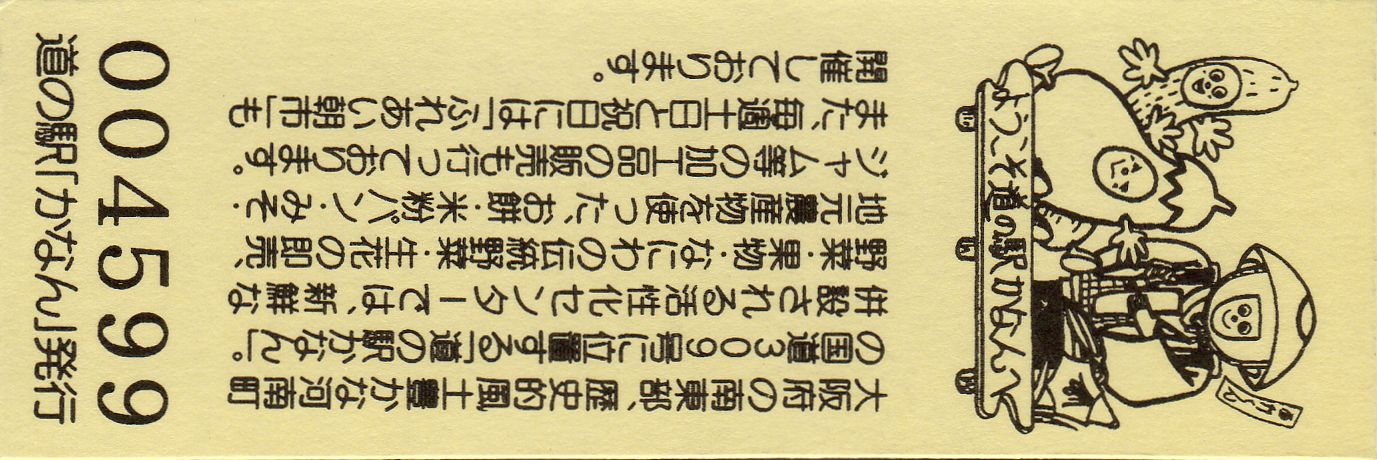 ようこそ道の駅かなんへ
大阪府の南東部、歴史的風土豊かな河南町
の国道309号に位置する「道の駅かなん」。
併設される活性化センターでは、新鮮な
野菜・果物・なにわの伝統野菜・生花の即売、
地元農産物を使った、お餅・米粉パン・みそ・
ジャム等の加工品の販売も行っております。
また、毎週土日と祝日には「ふれあい朝市」も
開催しております。
004599
道の駅「かなん」発行